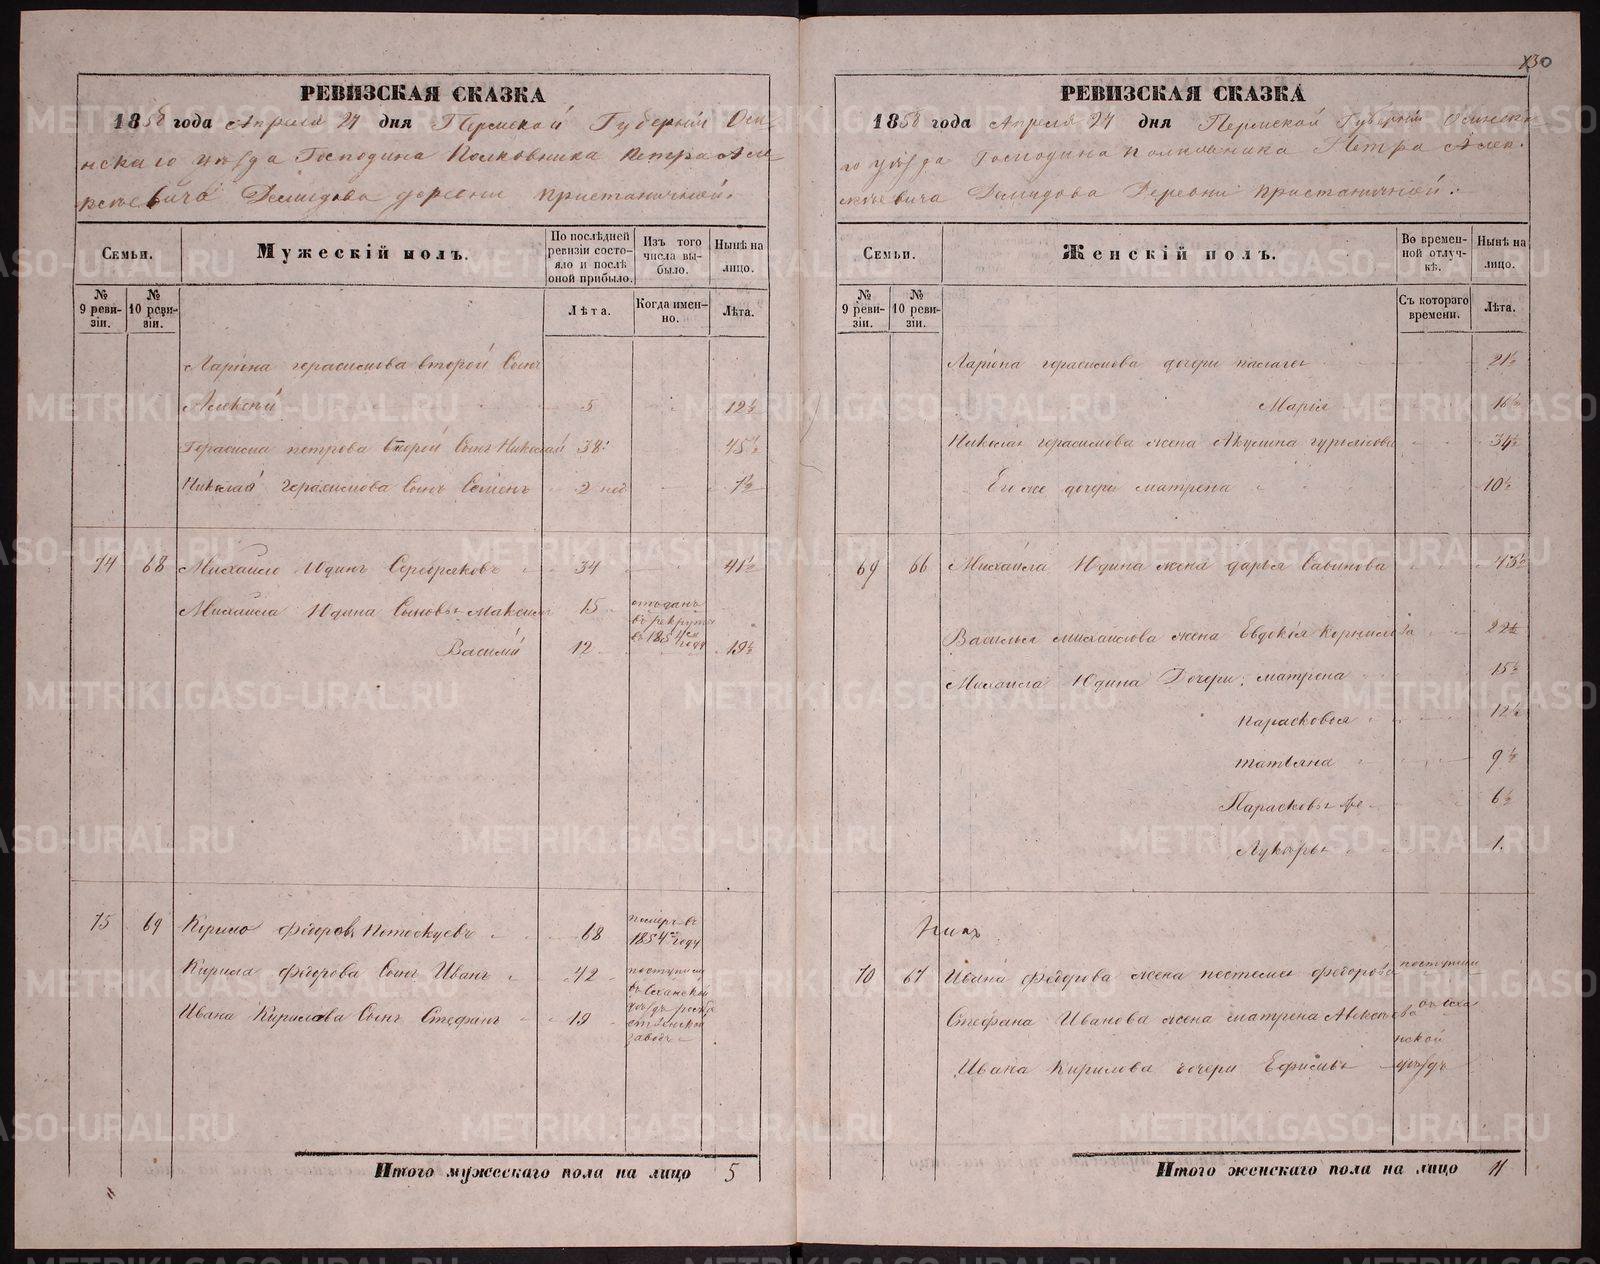 130
РЕВИЗСКАЯ СКАЗКА
1858 года Апреля 27 дня Пермской Губернии Оси-
нскаго уезда Господина Полковника Петра Але-
ксѣевича Демидова деревни Пристаничной.
Семьи.
Мужескій полъ.
По послѣдней ревизіи состо-
яло и послѣ оной прибыло.
Изъ того числа вы-
было.
Нынѣ на лицо.
№ 9 реви-
зіи.
№ 10 реви-
зіи.
Лѣта.
Когда имен-
но.
Лѣта.
Ларіона герасимова второй Сынъ
Алексѣй 5 12½
Герасима петрова второй Сынъ Николай 38 45½
Николая Герасимова Сынъ Семенъ 2 нед 7½
74 68 Михайло Юдинъ Серебряковъ 34 41½
Михаила Юдина Сыновья Максимъ 15 отданъ
въ рекруты
въ 1854 м году
Василий 12 19½
75 69 Кирило Федоровъ 68 померъ въ
1854 м году
Кирила федорова Сынъ Иванъ 42 поступили
въ Оханской
уѣздъ
Ивана Кирилова Сынъ Степанъ 19
заводъ
Итого мужескаго пола на лицо 5
РЕВИЗСКАЯ СКАЗКА
1858 года Апреля 27 дня Пермской Губерніи Осинска-
го уѣзда Господина полковника Петра Алек-
сѣевича Демидова Деревни пристаничной.
Семьи.
Женскій полъ.
Во времен-
ной отлуч-
кѣ.
Нынѣ на лицо.
№ 9 реви-
зіи.
№ 10 реви-
зіи.
Съ котораго времени.
Лѣта.
Ларіона герасимова дочери пелагея 21½
Марія 16½
Николая герасимова жена Акулина гурьянова 34½
Его же дочери матрена 10½
69 66 Михаила Юдина жена дарья Савинова 43½
Василья михаилова жена Евдокія Корнилова 22½
Михаила Юдина Дочери: матрена 15½
парасковья 12½
татьяна 9½
Парасковья же 6½
Лукерья 1.
70 67 Ивана федорова жена федорова поступили
Степана Иванова жена матрена Алексѣева въ Оха-
нской
Ивана Кирилова дочери уѣздъ
Итого женскаго пола на лицо 11
METRIKI.GASO-URAL.RU